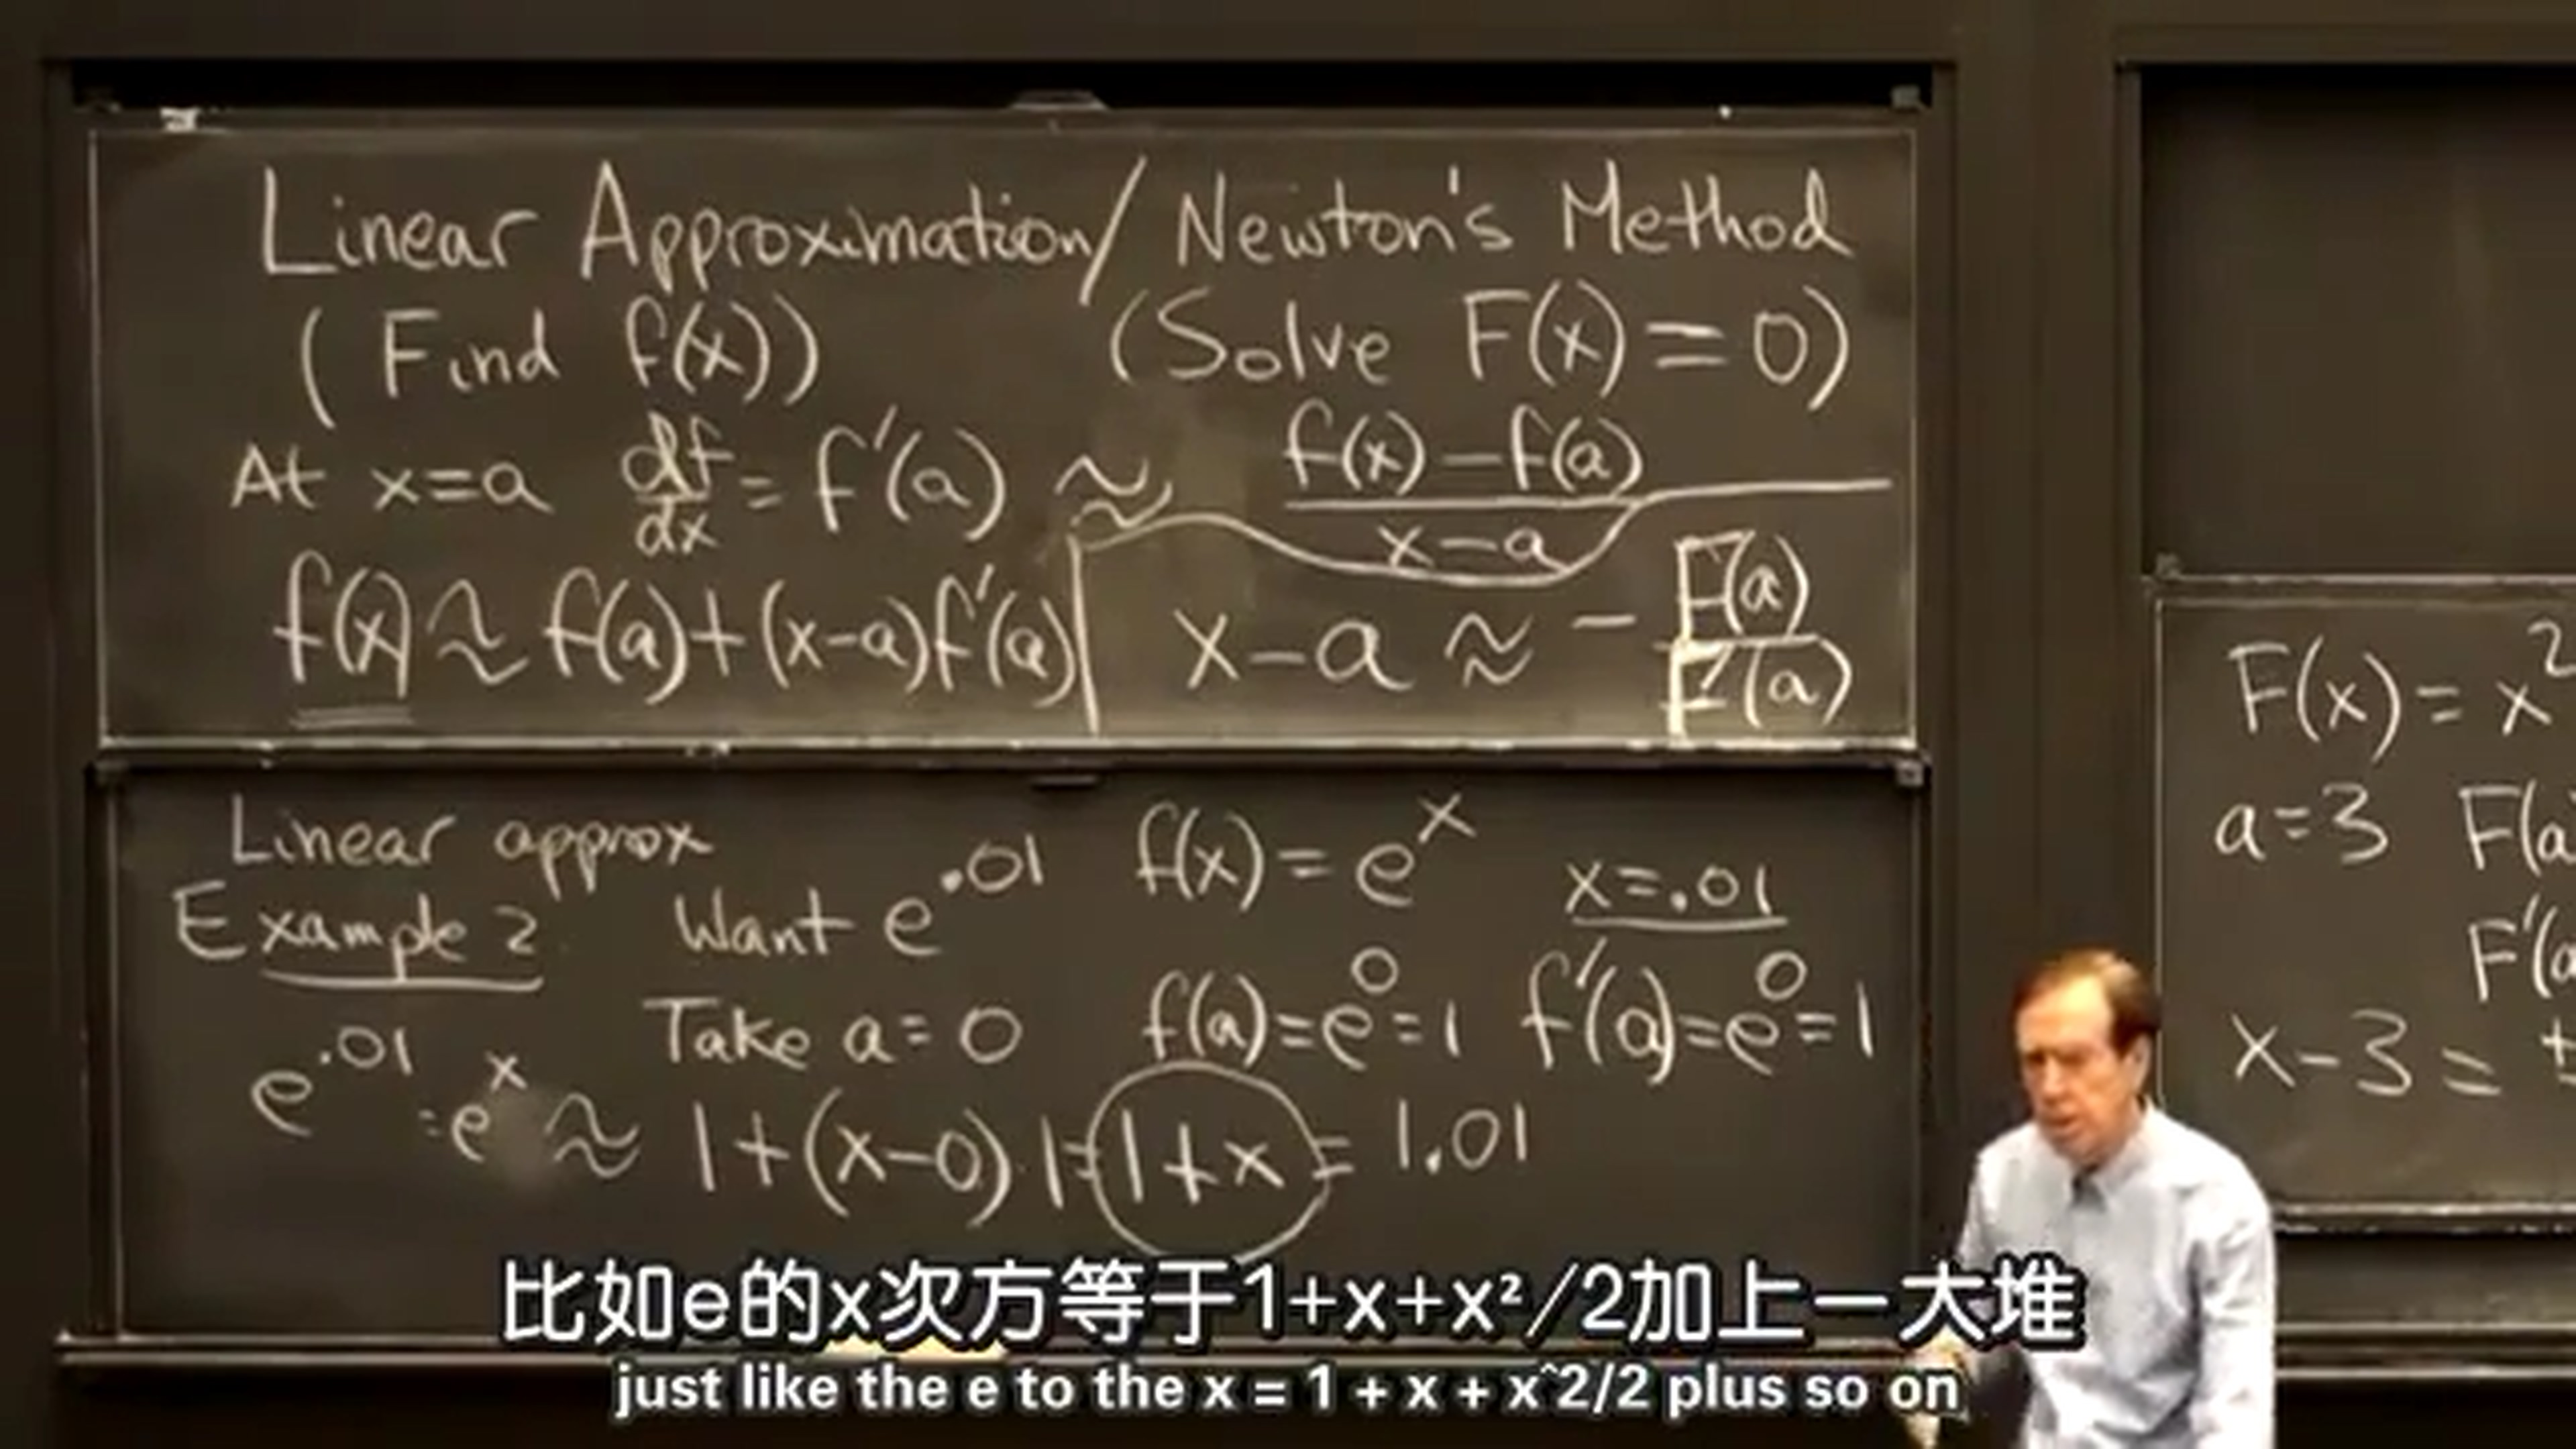 Linear Approximation/ Newton's Method
(Find f(x)) (Solve F(x)=0)
At x=a df/dx = f'(a) ≈ f(x)-f(a)/x-a
f(x) ≈ f(a)+(x-a)f'(a) x-a ≈ - F(a)/F'(a)
Linear approx
Example 2 Want e^.01 f(x)=e^x x=.01
Take a=0 f(a)=e^0=1 f'(a)=e^0=1
e^.01 =e^x ≈ 1+(x-0)·1=1+x=1.01
F(x)=x²
a=3 F(a
F'(a
x-3=
比如e的x次方等于1+x+x²/2加上一大堆
just like the e to the x = 1 + x + x^2/2 plus so on